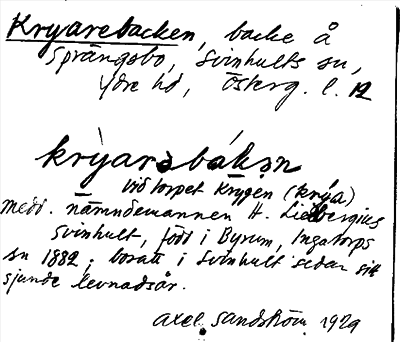 Kryarebacken, backe å
Sprängsbo, Svinhults sn,
Ydre hd, Österg. l. 12
krỳarəbákən
vid torpet Krygen (krýa)
medd. nämndemannen H. Liedbergius
Svinhult, född i Byrum, Ingatorps
sn 1882; bosatt i Svinhult sedan sitt
sjunde levnadsår.
Axel Sandström 1929